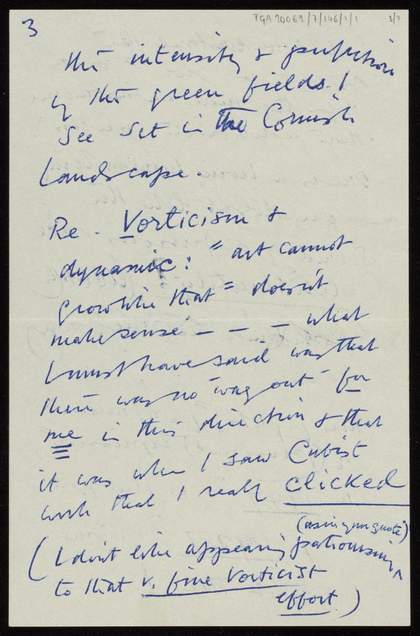 3
TGA 20069/7/146/1/1 3/7
the intensity & perfection
of the green fields I
see set in the Cornish
Landscape.
Re. Vorticism &
dynamic: "art cannot
grow like that" doesn't
make sense – – – what
I must have said was that
there was no "way out" for
me in this direction & that
it was when I saw Cubist
work that I really clicked
(asinyourquote)
(I don't like appearing patronising
to that v. fine Vorticist
effort)